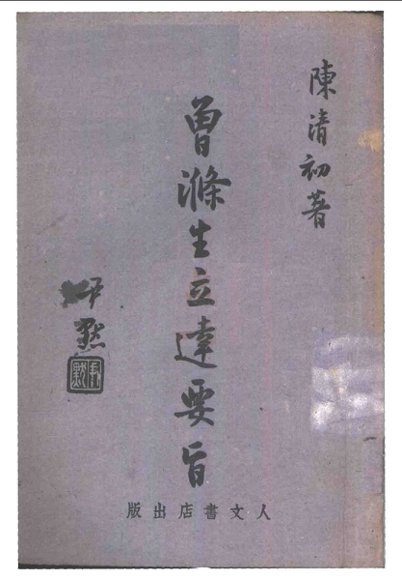 陳清初著
曾滌生立達要旨
尹默
人文書店出版